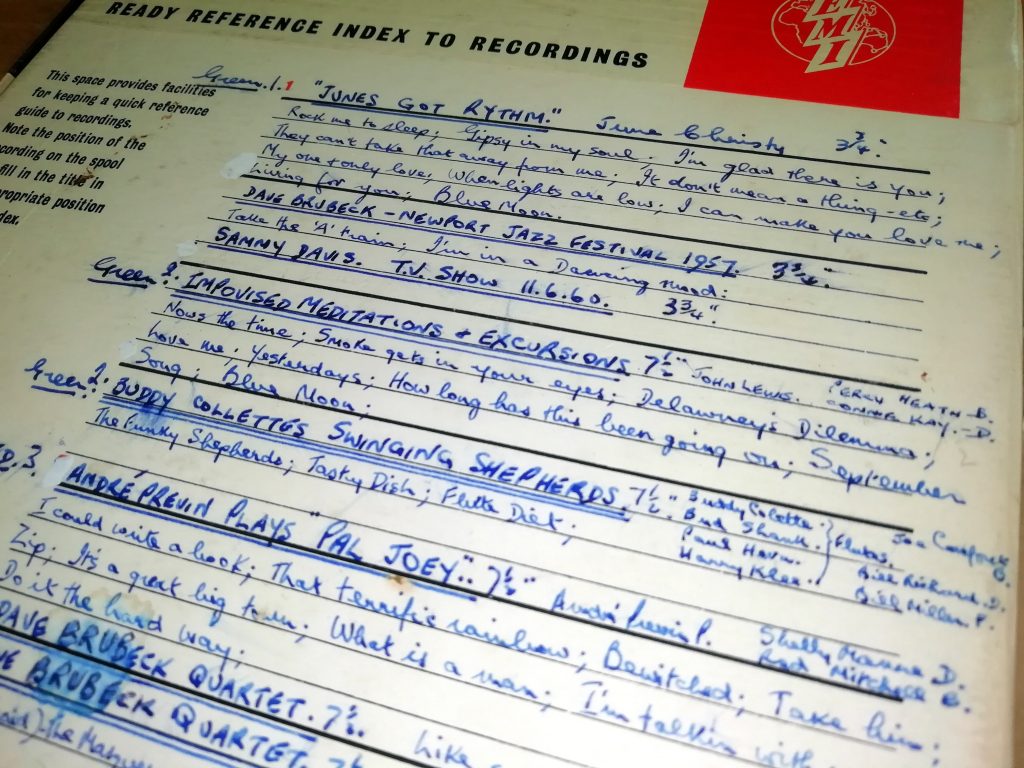 READY REFERENCE INDEX TO RECORDINGS
EMI
This space provides facilities
for keeping a quick reference
guide to recordings.
Note the position of the
cording on the spool
fill in the title in
propriate position
dex.
Green. 1. 1 "JUNES GOT RYTHM." June Christy 3¾".
Rock me to sleep; Gipsy in my soul. I'm glad there is you;
They can't take that away from me; It don't mean a thing-etc;
My one + only love; When lights are low; I can make you love me;
Living for you; Blue Moon.
DAVE BRUBECK - NEWPORT JAZZ FESTIVAL 1957. 3¾".
Take the 'A' train; I'm in a Dancing mood:
SAMMY DAVIS. T.V. SHOW 11.6.60. 3¾".
Green 2. IMPOVISED MEDITATIONS + EXCURSIONS 7½" JOHN LEWIS. PERCY HEATH - B.
CONNIE KAY. - D.
Nows the time; Smoke gets in your eyes; Delawney's Dilemma;
Love me; Yesterdays; How long has this been going on; September
Song; Blue Moon;
Green 2. BUDDY COLLETTES SWINGING SHEPHERDS. 7½" Buddy Collette. Flutes. Joe Comfort B.
Bud Shank. Bill Richmond. D.
Paul Horn. Bill Miller. P.
Harry Klee.
The Funky Shepherds; Tasty Dish; Flute Diet;
D. 3. ANDRÉ PREVIN PLAYS "PAL JOEY".. 7½" André Previn P. Shelly Manne D.
Red Mitchell B.
I could write a book; That terrific rainbow; Bewitched; Take him;
Zip; It's a great big town; What is a man; I'm talkin with
Do it the hard way;
DAVE BRUBECK QUARTET. 7½. Like
BRUBECK QUARTET.